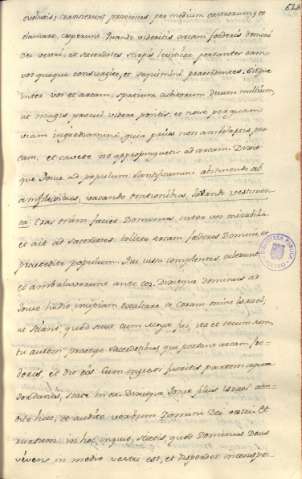 transierunt præcones, per medium castrorum, et
clamare, cæperunt: Quando videritis arcam fœderis domini
dei vestri, et sacerdotes stirpis leviticæ portantes eam
vos quoque consurgite, et sequimini præcedentes. Sitque
inter vos et arcam, spatium cubitorum duum millium,
ut procul videre possitis, et nosse per quam
viam ingrediamini quia prius non ambulastis, per
eam, et cavete ne appropinquetis ad arcam. Dixit
que Josue ad populum. Sanctificamini
vacando orationibus,
Cras enim faciet Dominus, inter vos mirabilia
et ait ad sacerdotes. tollite arcam fœderis Domini, et
præcedite populum. Qui iussa complentes tulerunt
et ambulaverunt ante eos. Dixitque dominus ad
Josue hodie incipiam exaltare te coram omni Israel,
ut sciant, quod sicut cum Moyse fui, ita et tecum sim
tu autem, præcipe sacerdotibus qui portant arcam fœ-
deris, et dic eis. Cum ingressi fueritis partem aquæ
Jordanis, state in ea. Dixitque Josue filios Israel ac-
cedite huc, et audite verbum Domini Dei vestri. Et
rursum in hoc inquit, scietis, quod Dominus Deus
vivens in medio vestri est, et disperdet